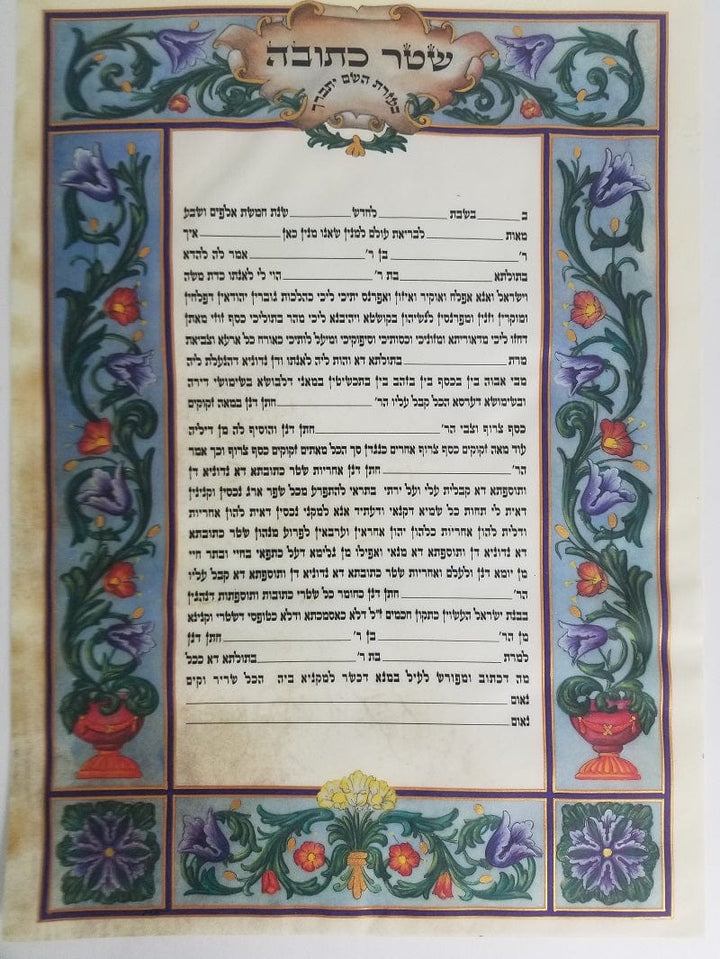 שטר כתובה
בעזרת השם יתברך
ב____ בשבת ________ לחדש ________ שנת חמשת אלפים ושבע
מאות ____________ לבריאת עולם למנין שאנו מנין כאן ____________ איך
ר' ____________ בן ר' ____________ אמר לה להדא
בתולתא ____________ בת ר' ____________ הוי לי לאנתו כדת משה
וישראל ואנא אפלח ואוקיר ואיזון ואפרנס יתיכי ליכי כהלכות גוברין יהודאין דפלחין
ומוקרין וזנין ומפרנסין לנשיהון בקושטא ויהיבנא ליכי מהר בתוליכי כסף זוזי מאתן
דחזו ליכי מדאוריתא ומזוניכי וכסותיכי וסיפוקיכי ומיעל לותיכי כאורח כל ארעא וצביאת
מרת ____________ בתולתא דא והות ליה לאנתו ודן נדוניא דהנעלת ליה
מבי אבוה בין בכסף בין בזהב בין בתכשיטין במאני דלבושא בשימושי דירה
ובשימושא דערסא הכל קבל עליו הר' ____________ חתן דנן במאה זקוקים
כסף צרוף וצבי הר' ____________ חתן דנן והוסיף לה מן דיליה
עוד מאה זקוקים כסף צרוף אחרים כנגדן סך הכל מאתים זקוקים כסף צרוף וכך אמר
הר' ____________ חתן דנן אחריות שטר כתובתא דא נדוניא דן
ותוספתא דא קבלית עלי ועל ירתי בתראי להתפרע מכל שפר ארג נכסין וקנינין
דאית לי תחות כל שמיא דקנאי ודעתיד אנא למקני נכסין דאית להון אחריות
ודלית להון אחריות כלהון יהון אחראין וערבאין לפרוע מנהון שטר כתובתא
דא נדוניא דן ותוספתא דא מנאי ואפילו מן גלימא דעל כתפאי בחיי ובתר חיי
מן יומא דנן ולעלם ואחריות שטר כתובתא דא נדוניא דן ותוספתא דא קבל עליו
הר' ____________ חתן דנן כחומר כל שטרי כתובות ותוספתות דנהגין
בבנת ישראל העשוין כתקון חכמים ז"ל דלא כאסמכתא ודלא כטופסי דשטרי וקנינא
מן הר' ____________ בן ר' ____________ חתן דנן
למרת ____________ בת ר' ____________ בתולתא דא ככל
מה דכתוב ומפורש לעיל במנא דכשר למקניא ביה הכל שריר וקים
נאום ____________
נאום ____________